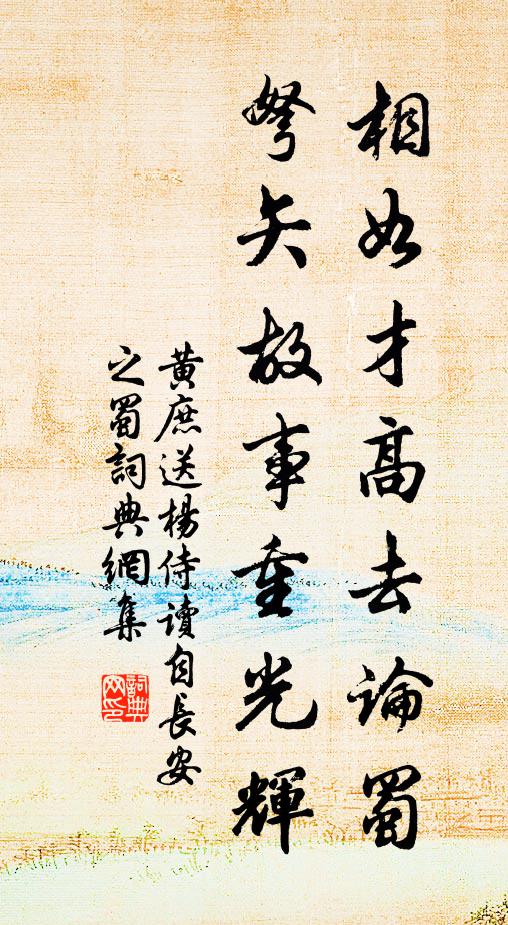 相如才高去論蜀
弩矢故事重光輝
黃庶送楊侍讀自長安
之蜀詞典網集
詞典
网印